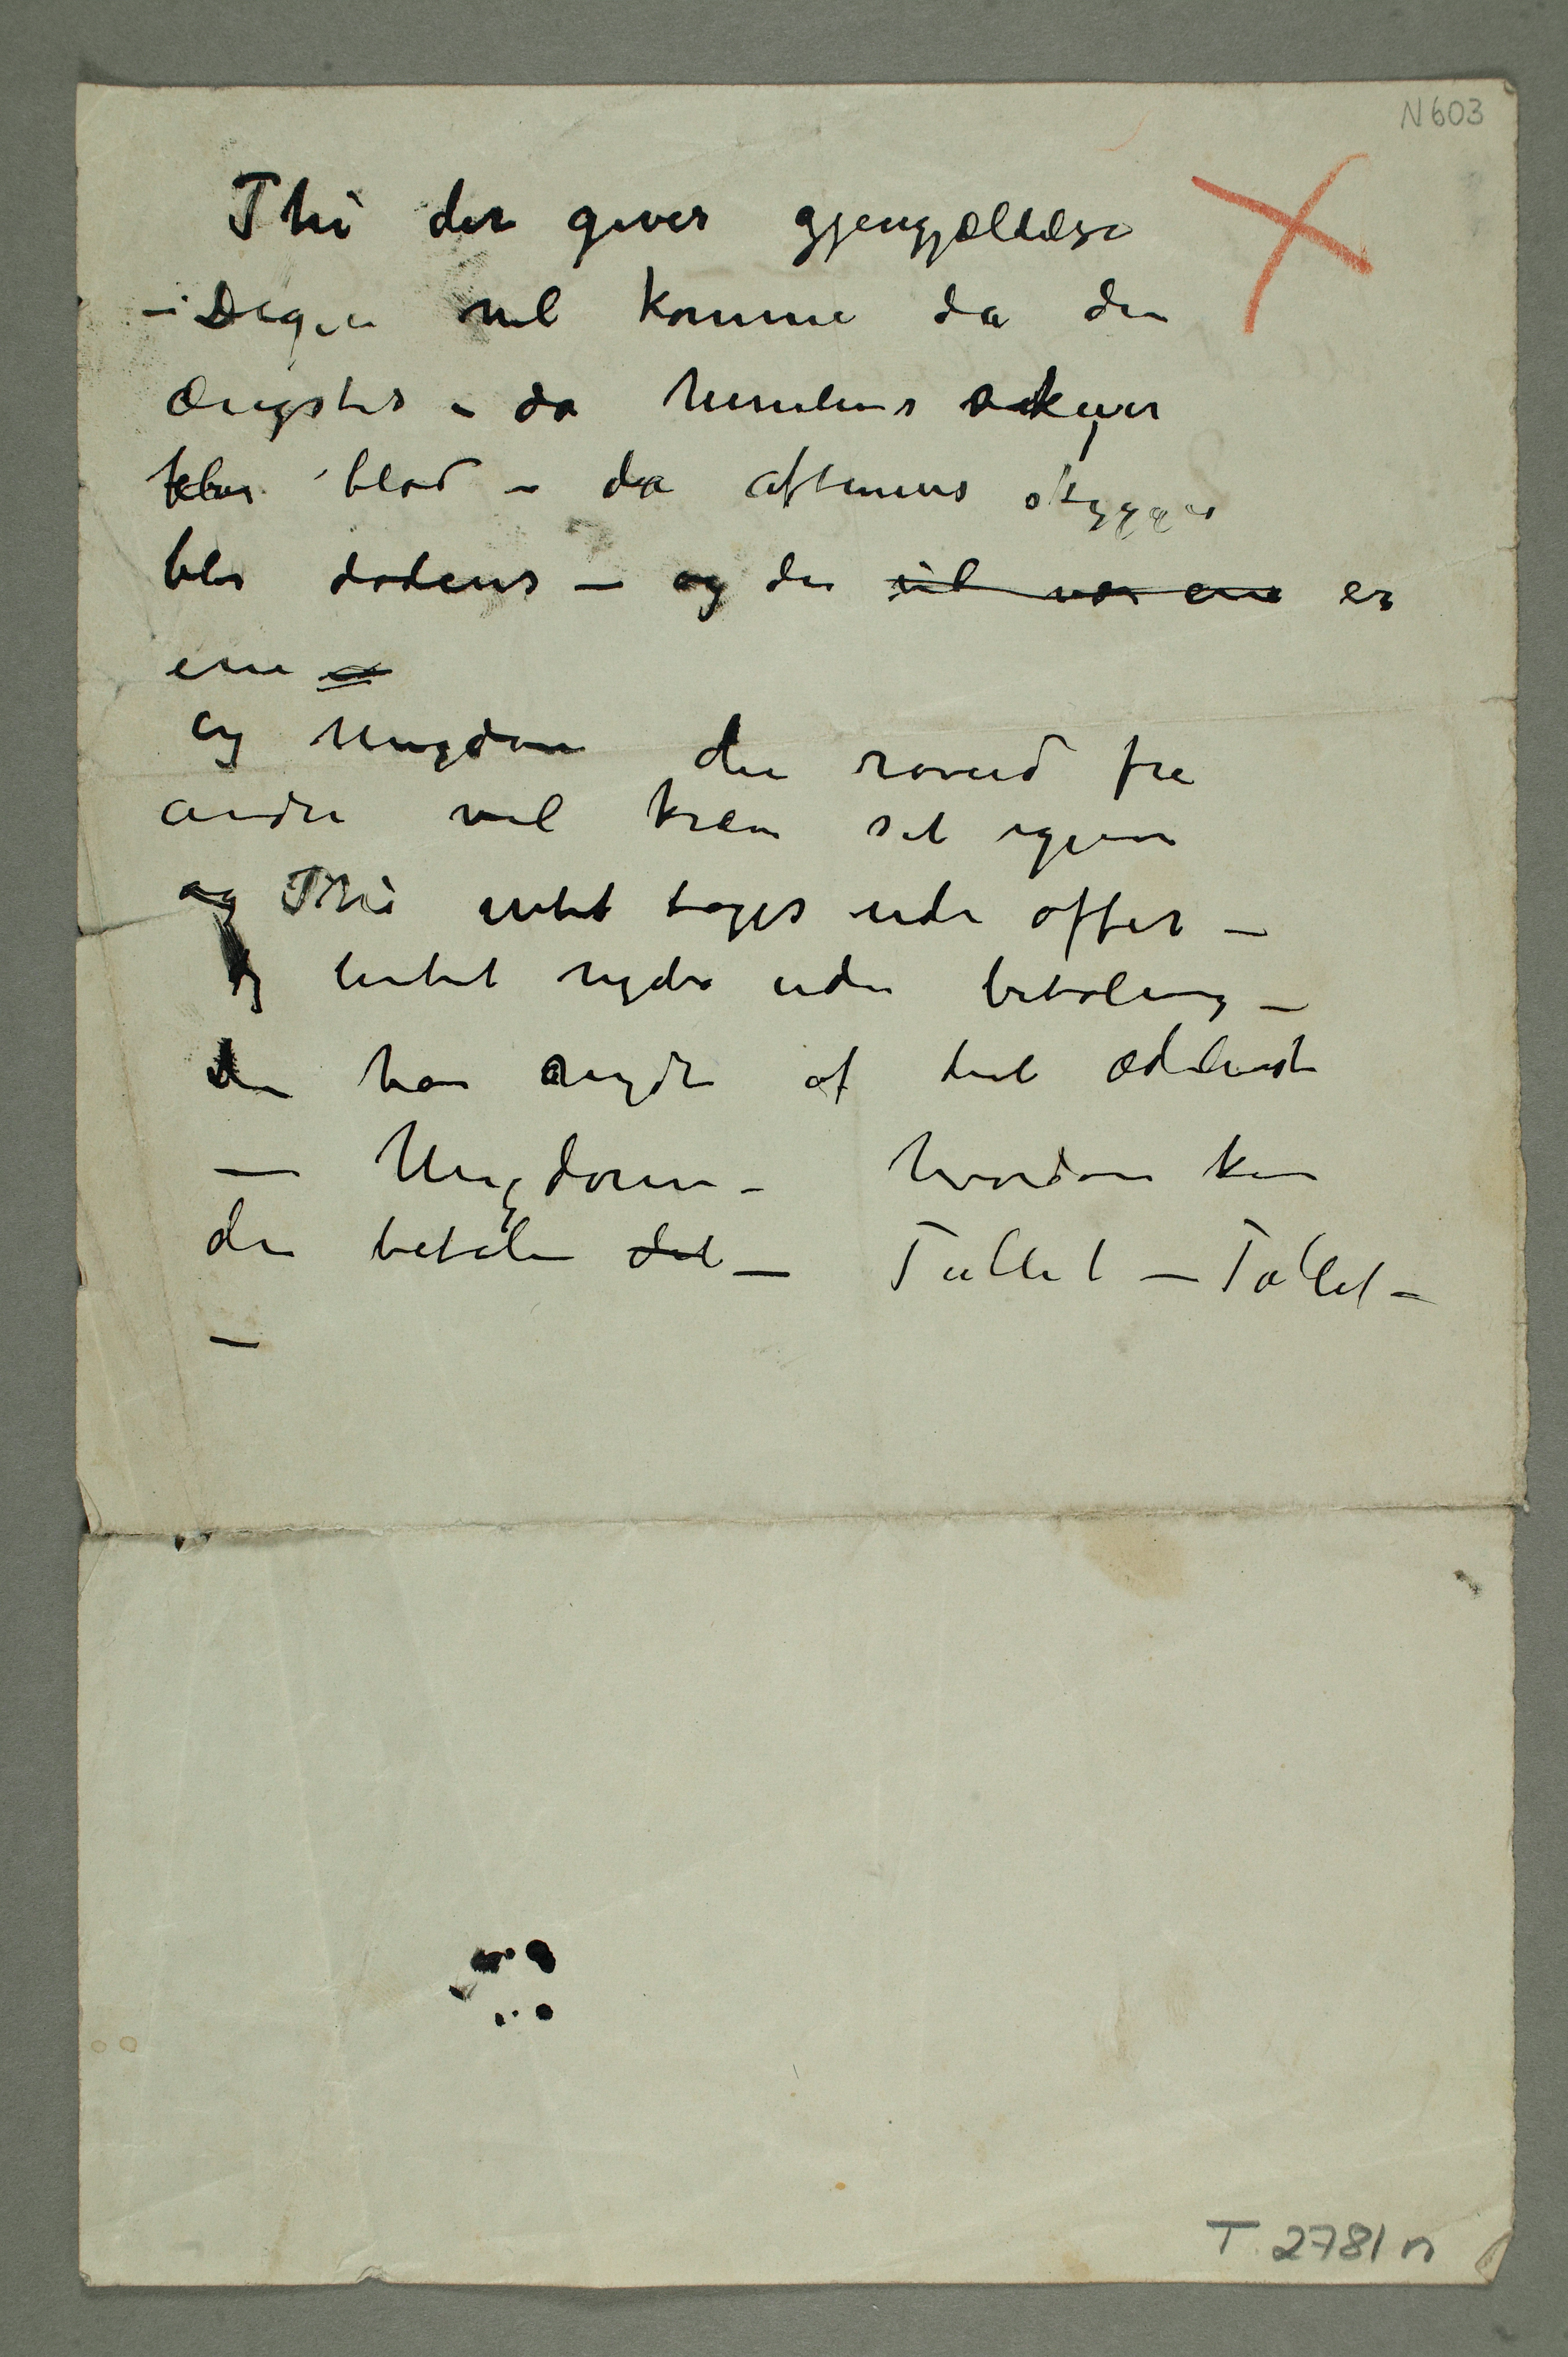 N 603
Thi der gives gjengjældelse
– Dagen vil komme da du
ængstes – da himlens skyer
blir blod – da aftenens skygger
blir dødens – og du vil være ene er
ene
og Ungdom du røved fra
andre vil kræve sit igjen
og Thi intet tages uden offer –
og intet nydes uden betaling –
du har nydt af det ædleste
– Ungdom – hvordan kan
du betale det – Tallet – Tallet –
–
T 2781 n